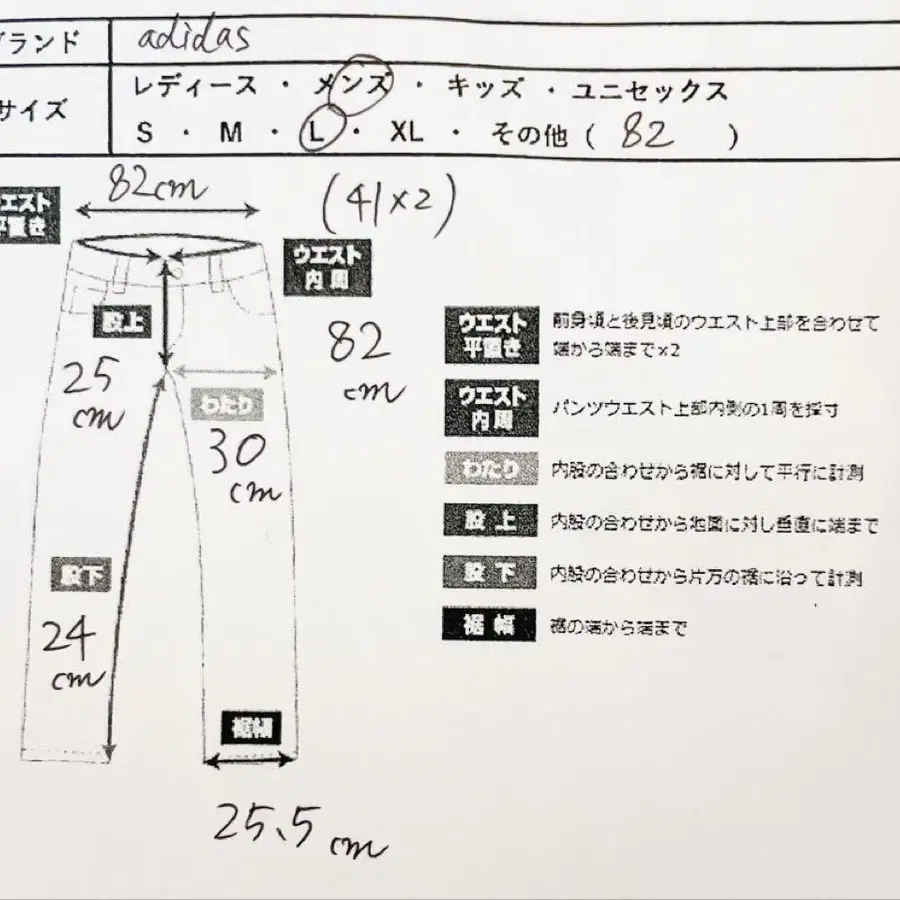 ブランド
adidas
サイズ
レディース ・ メンズ ・ キッズ ・ ユニセックス
S ・ M ・ L ・ XL ・ その他 ( 82 )
82cm
(41×2)
ウエスト
平置き
ウエスト
内周
82
cm
股上
25
cm
わたり
30
cm
股下
24
cm
裾幅
25.5 cm
ウエスト
平置き
前身頃と後見頃のウエスト上部を合わせて
端から端まで×2
ウエスト
内周
パンツウエスト上部内側の1周を採寸
わたり
内股の合わせから裾に対して平行に計測
股上
内股の合わせから地面に対し垂直に端まで
股下
内股の合わせから片方の裾に沿って計測
裾幅
裾の端から端まで